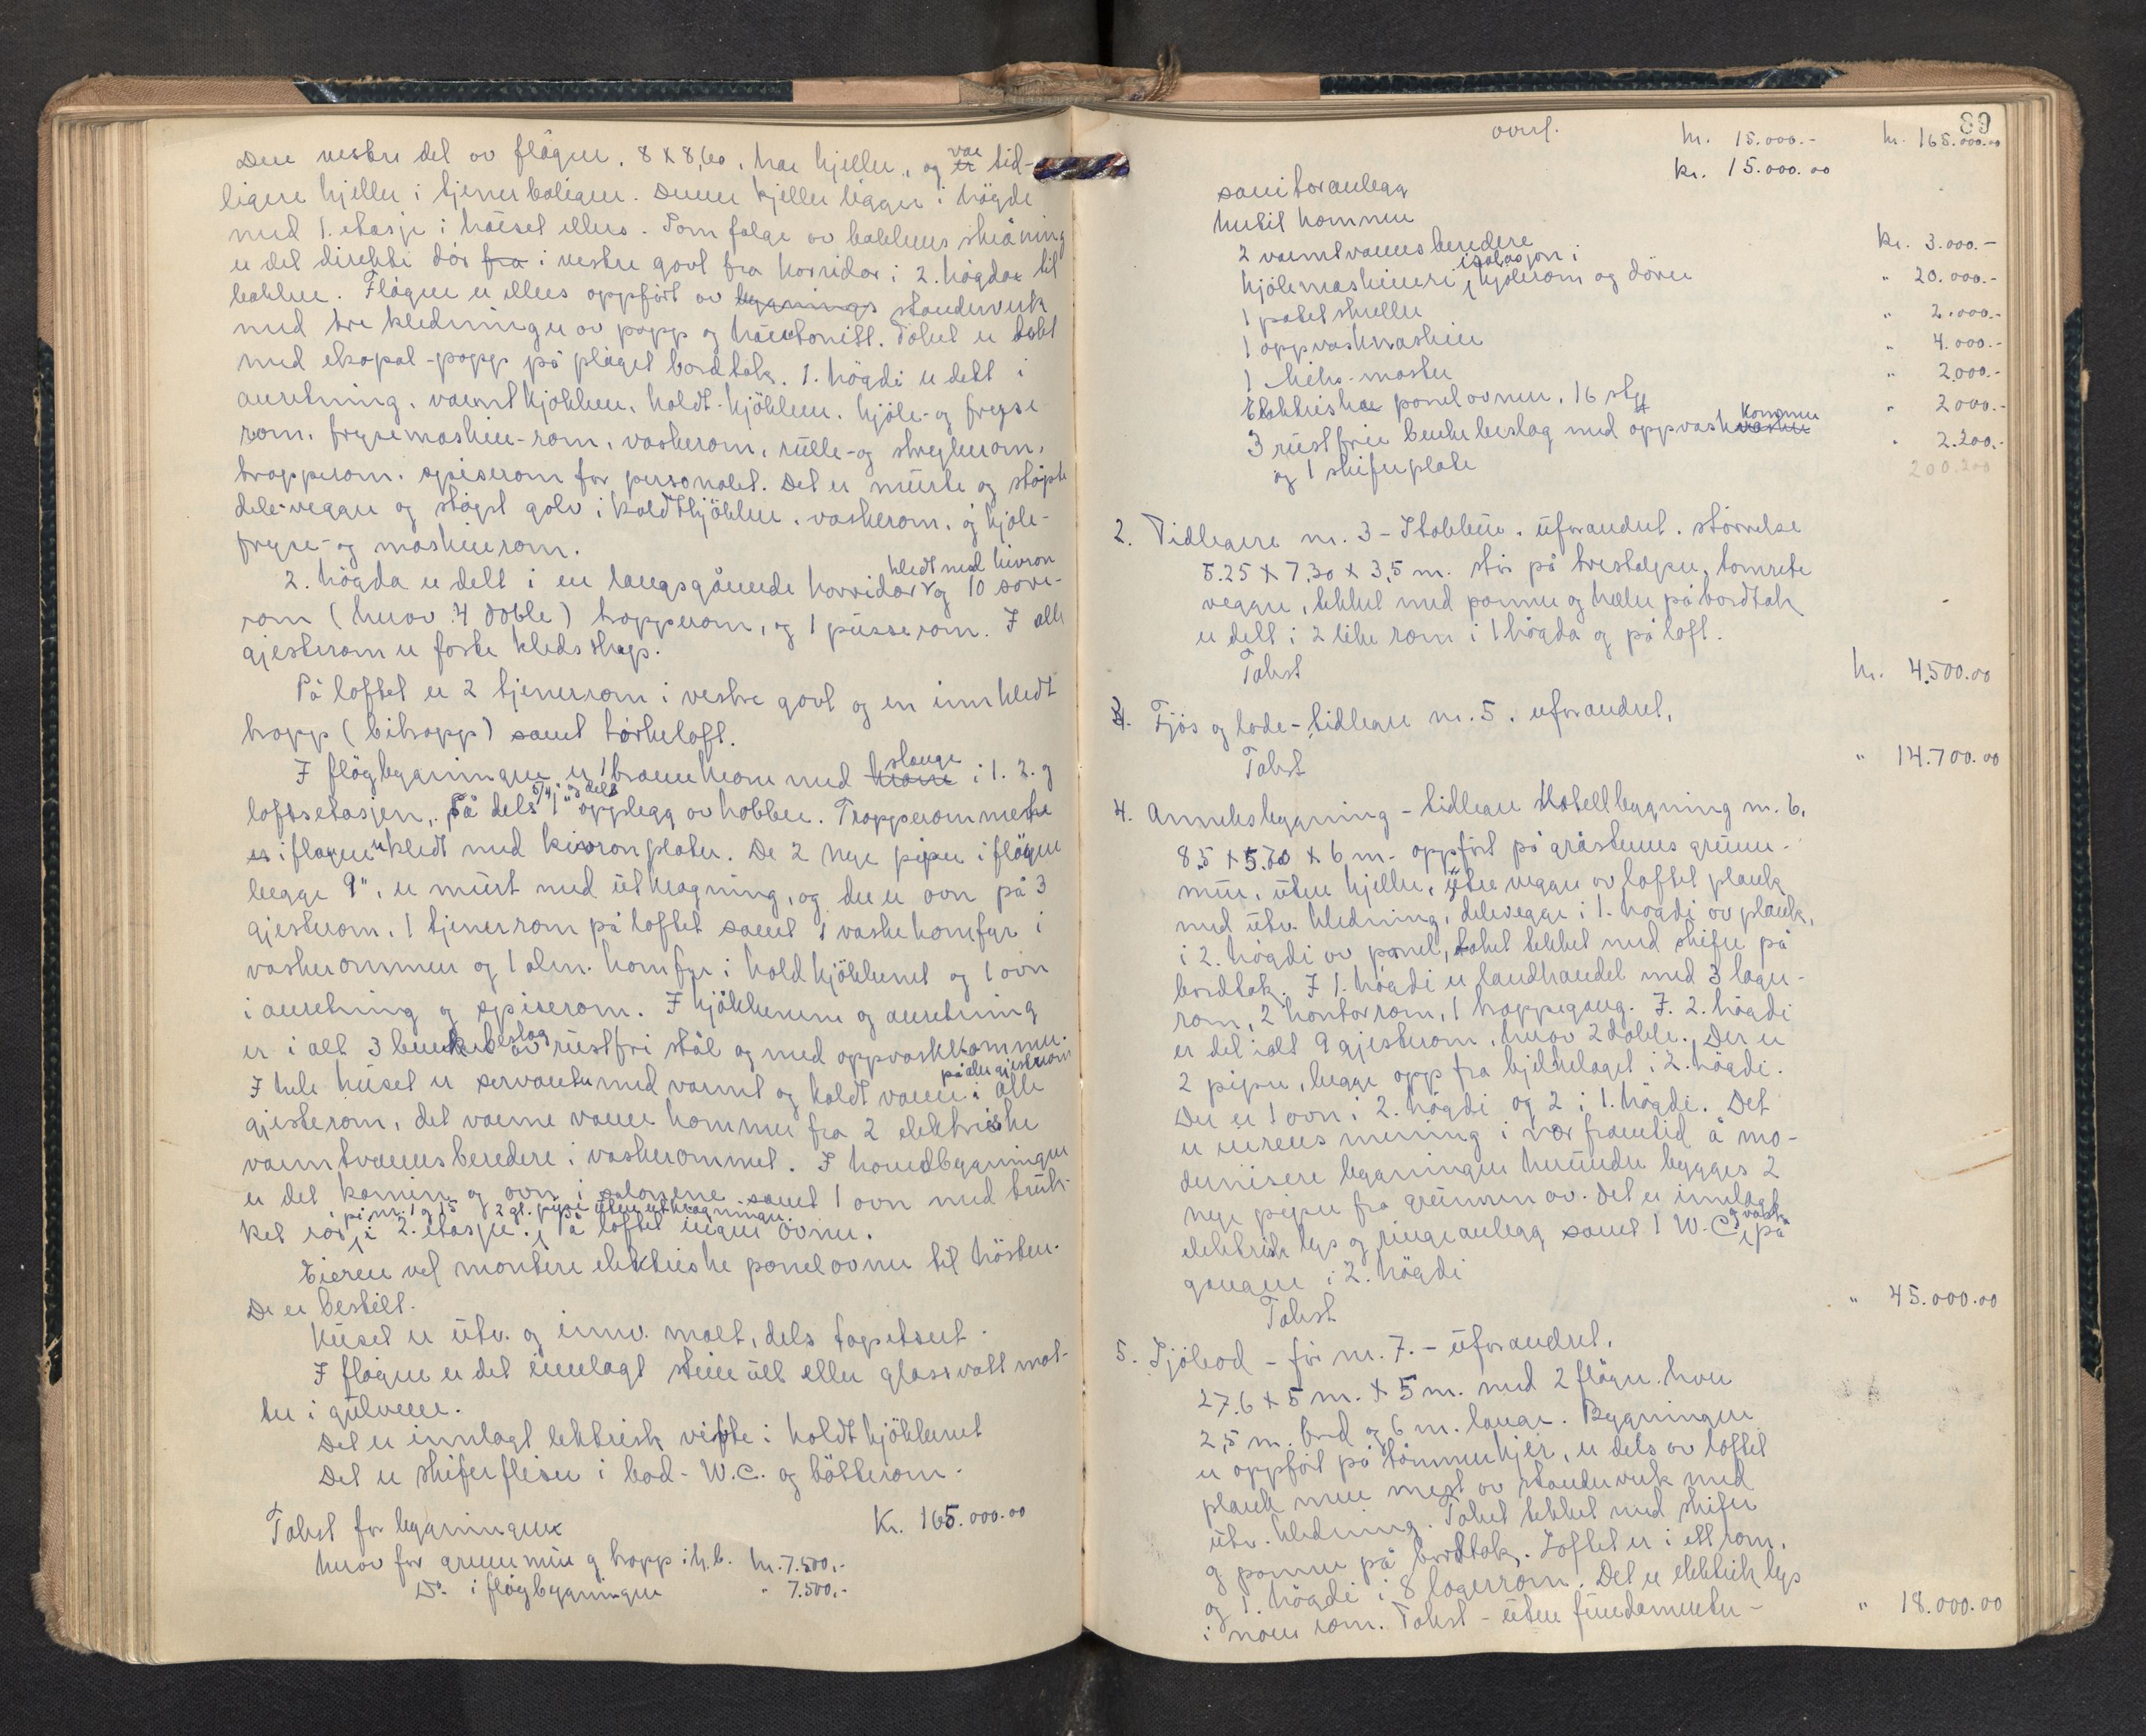 Den vestre del av flögen, 8 X 8,60, har kjeller, og var tid-
ligere kjeller i tjenerboligen. Denne kjeller ligger i högde
med 1. etasje i huset ellers. Som folge av bakkens skråning
er det direkte dör fra i vestre gavl fra korridor i 2. högda til
bakken. Flögen er ellers oppfört av bygnings standerverk
med tre kledninger av papp og hauntonitt. Taket er tekt
med ekapal-papp på pløget bordtak. 1. högdi er delt i
anretning, varmtkjökken, koldt-kjökken, kjöle- og fryse
rom, frysemaskin-rom, vaskerom, rulle- og strykerom,
trapperom, spiserom for personalet. Det er murte og stöpte
dele-vegger og stöpt golv i koldtkjökken, vaskerom, og kjöle-
fryse- og maskinrom.
2. högda er delt i en langsgående korridor kledt med kivron og 10 sove-
rom (herav 4 doble) trapperom, og 1 pusserom. I alle
gjesterom er faste kledsskap.
På loftet er 2 tjenerrom i vestre gavl og en innkledt
trapp (bitrapp) samt törkeloft.
I flögbygningen er 1 brannkran med krane slange i 1. 2. og
loftsetasjen, på dels 5/4" og dels 1" opplegg av kobber. Trapperommene
er i flögen kledt med kivronplater. De 2 nye piper i flögen
begge 9", er murt med utkragning, og der er ovn på 3
gjesterom, 1 tjenerrom på loftet samt 1 vaskekomfyr i
vaskerommen og 1 alm. komfyr i koldkjökkenet og 1 ovn
i anretning og spiserom. I kjökkenene og anretning
er i alt 3 benkebeslag av rustfri stål og med oppvaskkommer.
I hele huset er servanter med varmt og koldt vann i alle på alle gjesterom
gjesterom, det varme vann kommer fra 2 elektriske
varmtvannsberedere i vaskerommet. I hovedbygningen
er det kamin og ovn i salongene samt 1 ovn med trük-
ket rör på nr. 1 og 15 i 2. etasje. 2 gl. piper uten utkragninger. På loftet ingen ovner.
Eieren vil montere elektriske panelovner til hösten.
De er bestilt.
Huset er utv. og innv. malt, dels tapetsert.
I flögen er det innlagt stenull eller glassvatt mat-
ter i gulvene.
Det er innlagt elektrisk vifte i koldtkjökkenet
Det er skiferfliser i bad- W.C. og bötterom.
Takst for bygningen Kr. 165.000.00
herav for grunnmur og trapp i h.b. kr. 7.500,-
Do. i flögbygningen " 7.500,-
89
overf. kr. 15.000.- kr. 165.000.00
kr. 15.000.00
sanitæranlegg
hertil kommer
2 varmtvannsberedere kr. 3.000.-
kjölemaskineri, isolasjon i kjölerom og dörer " 20.000.-
1 potetskreller " 2.000.-
1 oppvaskmaskin " 4.000.-
1 miks-master " 2.000.-
Elektriske panelovner, 16 stk " 2000.-
3 rustfrie benkebeslag med oppvaskkommer " 2.200.-
og 1 skiferplate 200.200
2. Tidlegare nr. 3 - Stabbur. uforandret. störrelse
5.25 X 7,30 X 3,5 m. står på trestolper, tomrete
vegger, tekket med panner og heller på bordtak
er delt i 2 like rom i 1 högda og på loft.
Takst kr. 4.500.00
3. Fjös og lade - tidlegere nr. 5. uforandret.
Takst " 14.700.00
4. Anneksbygning - tidlegere Hotellbygning nr. 6.
8,5 X 5.70 X 6 m. oppfört på gråsteins grunn-
mur, uten kjeller, ytre vegger av loftet plank
med utv. kledning, delevegge i 1. högdi av plank,
i 2. högdi av panel, taket tekket med skifer på
bordtak. I 1. högdi er landhandel med 3 lager-
rom, 2 kontorrom, 1 trappegang. I 2. högdi
er det ialt 9 gjesterom, herav 2 doble. Der er
2 piper, begge opp fra bjelkelaget i 2. högdi.
Der er 1 ovn i 2. högdi og 2 i 1. högdi. Det
er eierens mening i nær framtid å mo-
dernisere bygningen herunder bygges 2
nye piper fra grunnen av. Det er innlagt
elektrisk lys og ringeanlegg samt 1 W.C. og vask på
gangen i 2. högdi
Takst " 45.000.00
5. Sjöbod - för nr. 7. - uforandret.
27.6 X 5 m. X 5 m. med 2 flöger hver
2,5 m. bred og 6 m. lange. Bygningen
er oppfört på tömmerkjer, er dels av loftet
plank men mest av standerverk med
utv. kledning. Taket tekket med skifer
og panner på bordtak. Loftet er i ett rom,
og 1. högdi i 8 lagerrom. Det er elektrisk lys
i noen rom. Takst - uten fundamenter - " 18.000.00